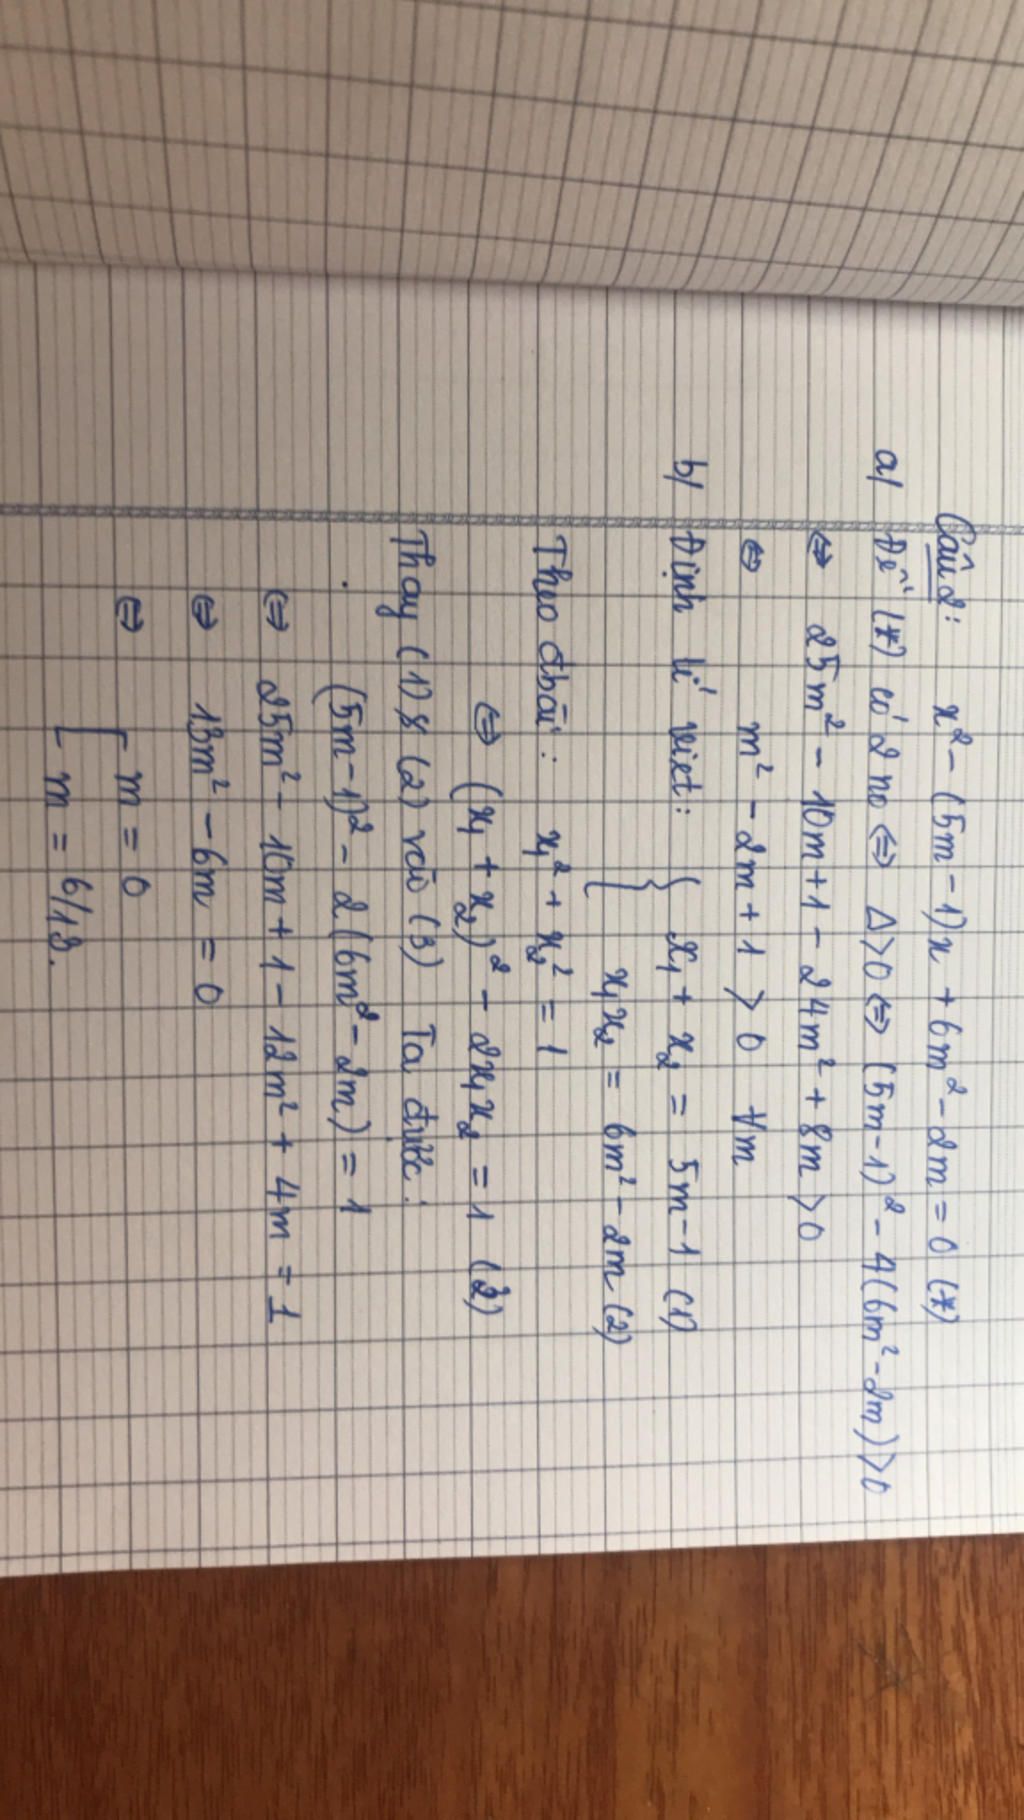 Câu 2: x² - (5m - 1)x + 6m² - 2m = 0 (*)
a/ Để (*) có 2 no ⇔ Δ > 0 ⇔ (5m-1)² - 4(6m² - 2m) > 0
⇔ 25m² - 10m + 1 - 24m² + 8m > 0
⇔ m² - 2m + 1 > 0 ∀m
b/ Định lí viet: { x₁ + x₂ = 5m-1 (1)
{ x₁x₂ = 6m² - 2m (2)
Theo đbài: x₁² + x₂² = 1
⇔ (x₁ + x₂)² - 2x₁x₂ = 1 (3)
Thay (1) & (2) vào (3) Ta được:
(5m-1)² - 2(6m² - 2m) = 1
⇔ 25m² - 10m + 1 - 12m² + 4m = 1
⇔ 13m² - 6m = 0
⇔ [ m = 0
[ m = 6/13.